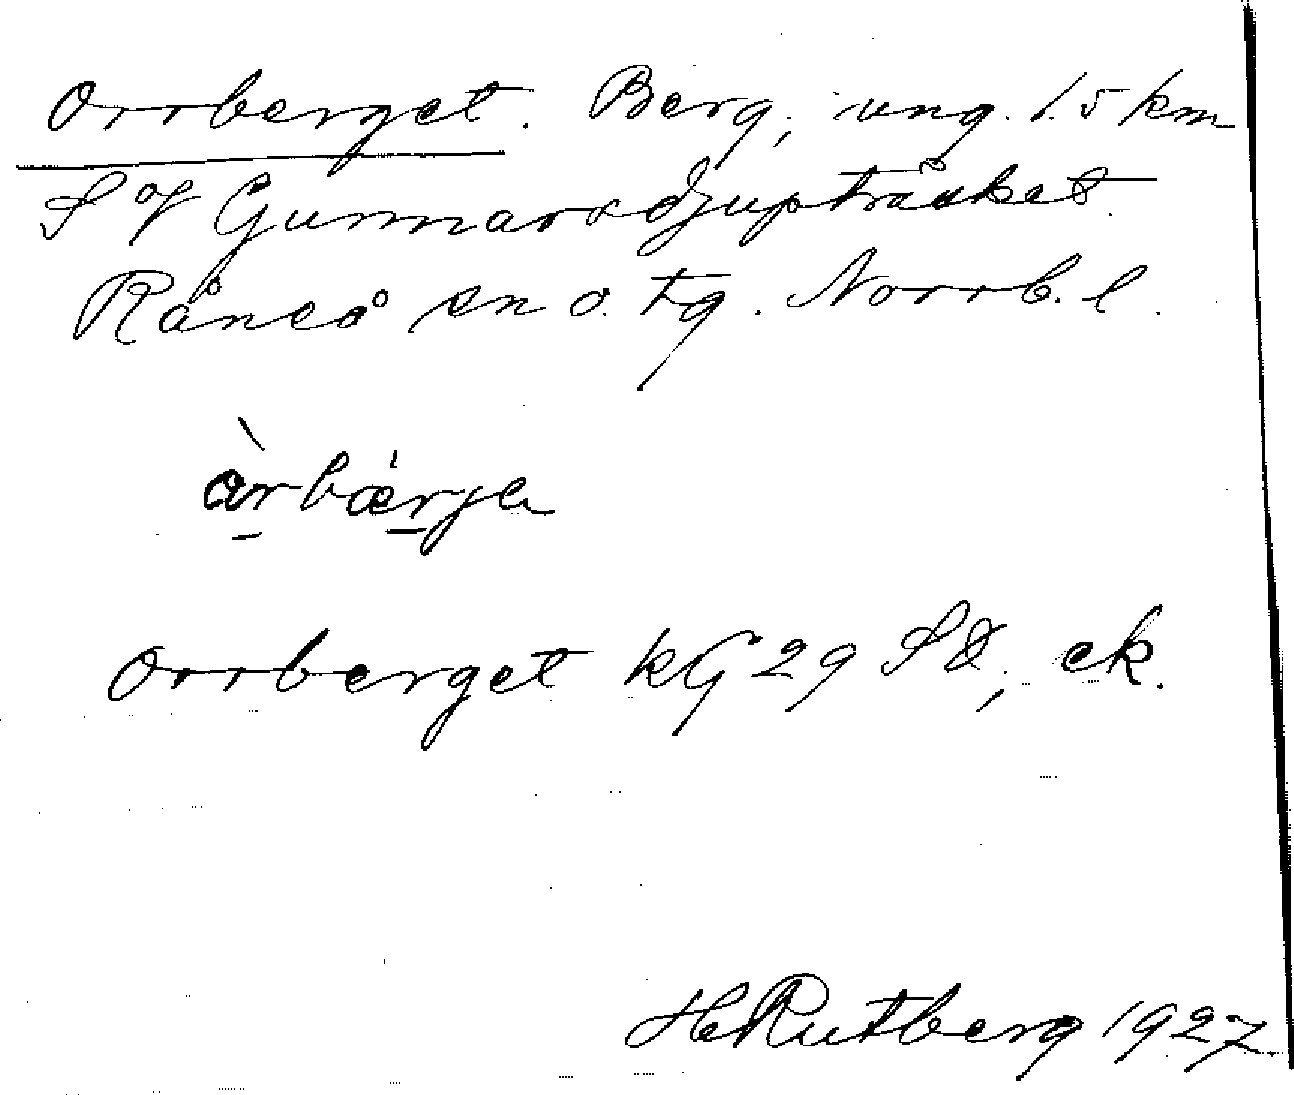 Orrberget. Berg, ung. 1.5 km
S of Gunnarsdjupträsket.
Råneå sn o. tg. Norrb. l.
àrbǽrje
Orrberget kG 29 SO, ek.
H Rutberg 1927